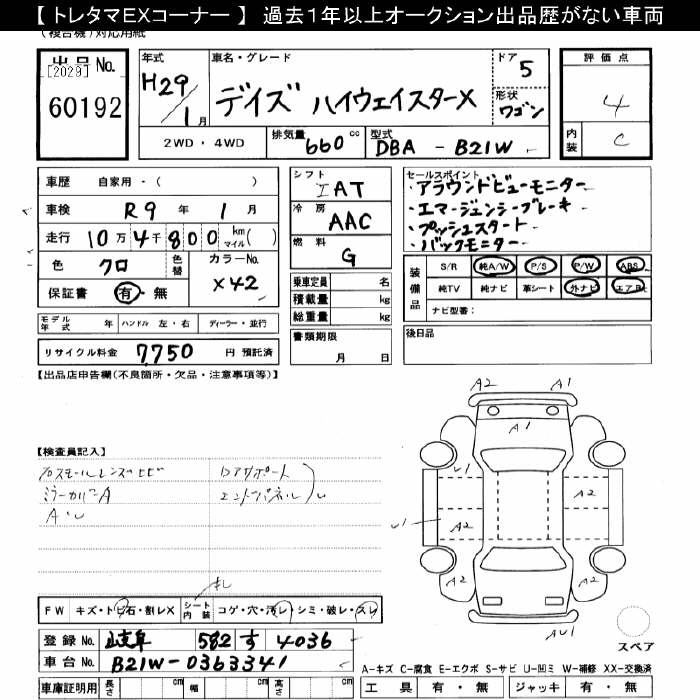 【トレタマEXコーナー】 過去1年以上オークション出品歴がない車両
(複合機)対応用紙
出品No.
[2029]
60192
年式
H29/1月
車名・グレード
デイズ ハイウェイスターX
ドア 5
形状 ワゴン
評価点
4
内装 C
2WD・4WD
排気量 660 cc
型式 DBA - B21W
車歴 自家用・( )
車検 R9年 1月
走行 10万4千800 km マイル( )
色 クロ 色替
カラーNo. X42
保証書 有・無
シフト IAT
冷房 AAC
燃料 G
乗車定員 名
積載量 kg
総重量 kg
書類期限 月 日
セールスポイント
・アラウンドビューモニター
・エマージェンシーブレーキ
・プッシュスタート
・バックモニター
装備品
S/R 純A/W P/S P/W ABS
純TV 純ナビ 革シート 外ナビ エアB
ナビ型番:
後日品
モデル年式 年 ハンドル 左・右 ディーラー・並行
リサイクル料金 7,750 円 預託済
【出品店申告欄(不良箇所・欠品・注意事項等)】
【検査員記入】
フロスモールレンズヒビ
ミラーカバーA
A・U
コアサポート
エンドパネル U
A2 A1
A1
U1 A2
U1 A2
A2 A2
AU1
スペア
FW キズ・トビ石・割レX シート内装 コゲ・穴・汚レ・シミ・破レ・スレ
登録No. 岐阜 582 す 4036
車台No. B21W-0363341
車庫証明用 長さ cm 幅 cm 高さ cm
A-キズ C-腐食 E-エクボ S-サビ U-凹ミ W-補修 XX-交換済
工具 有・無 ジャッキ 有・無